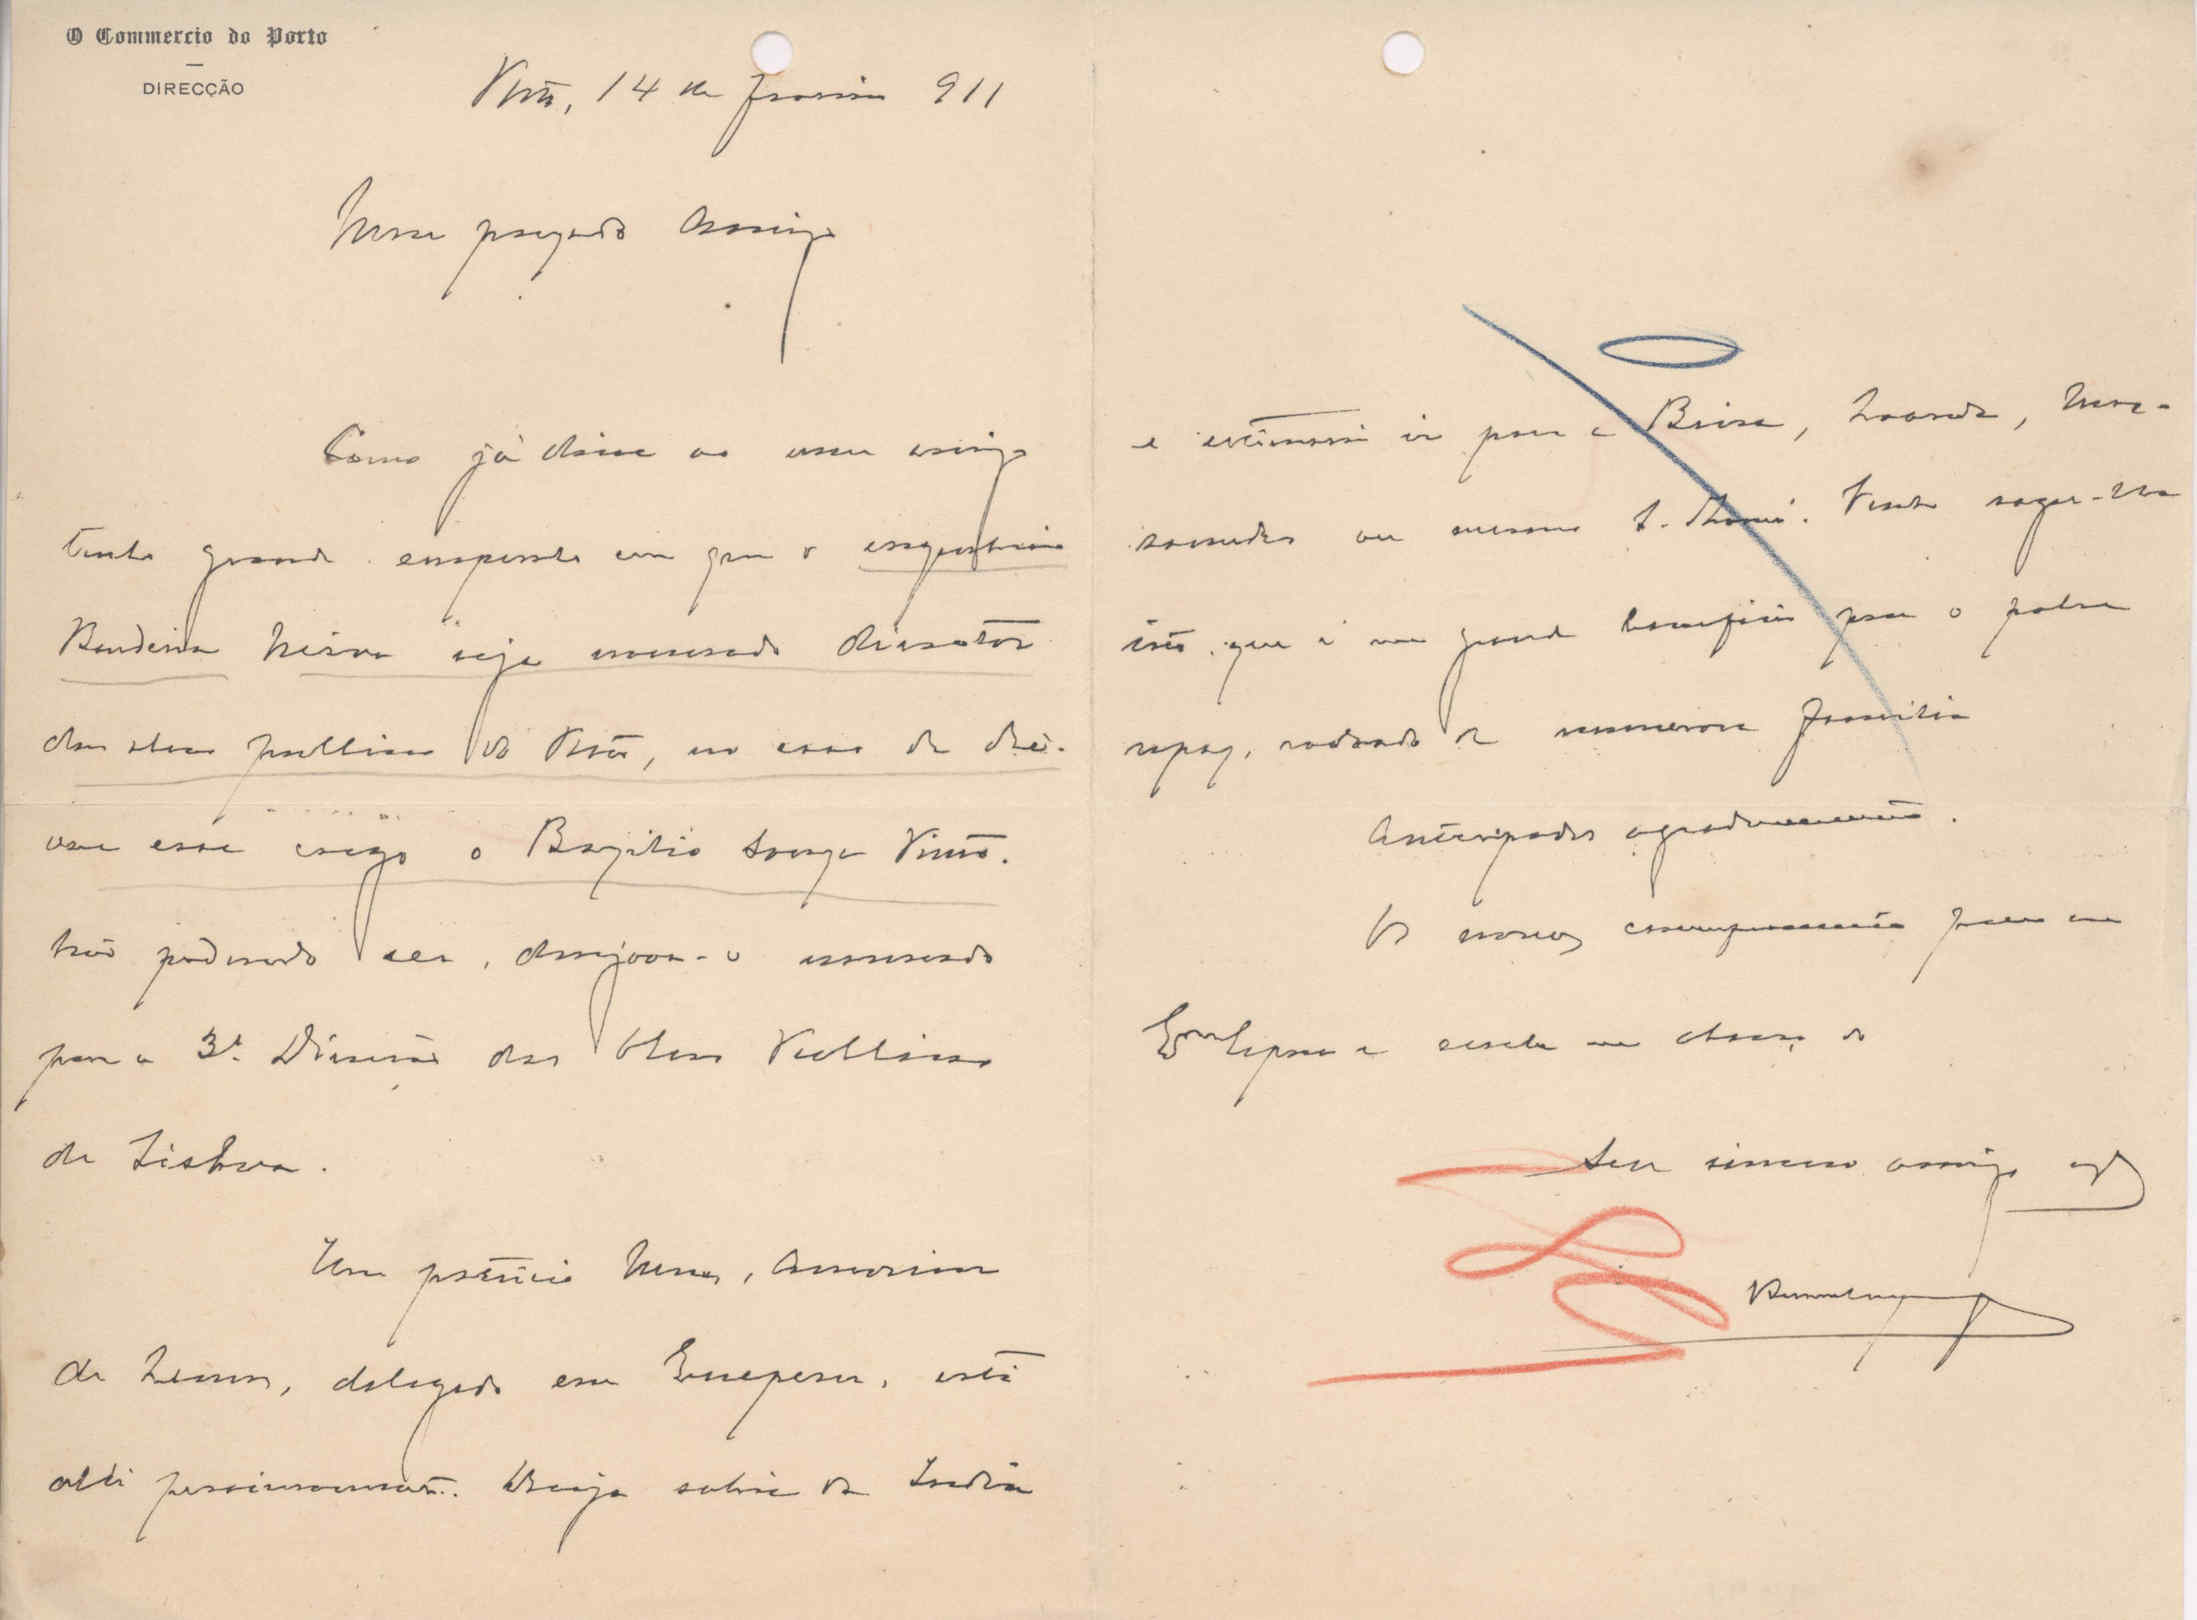 O Commercio do Porto
DIRECÇÃO
Porto, 14 de Janeiro 911
Meu prezado Amigo
Como já disse ao meu amigo
tenho grande empenho em que o engenheiro
Bandeira Neiva seja nomeado director
das obras publicas do Porto, no caso de dei-
xar esse cargo o Bazilio Souza Pinto.
Não podendo ser, desejava-o nomeado
para a 3ª Direcção das Obras Publicas
de Lisboa.
Um patricio meu, Amorim
de Lemos, delegado em Quepem, está
alli pessimamente. Deseja sahir da India
e estimaria ir para a Beira, Loanda, Mos-
samedes ou mesmo S. Thomé. Venho rogar-lhe
isto que é um grande beneficio para o pobre
rapaz, rodeado de numerosa familia
Antecipados agradecimentos.
Os nossos cumprimentos para sua
Exma Esposa e receba um abraço do
Seu sincero amigo